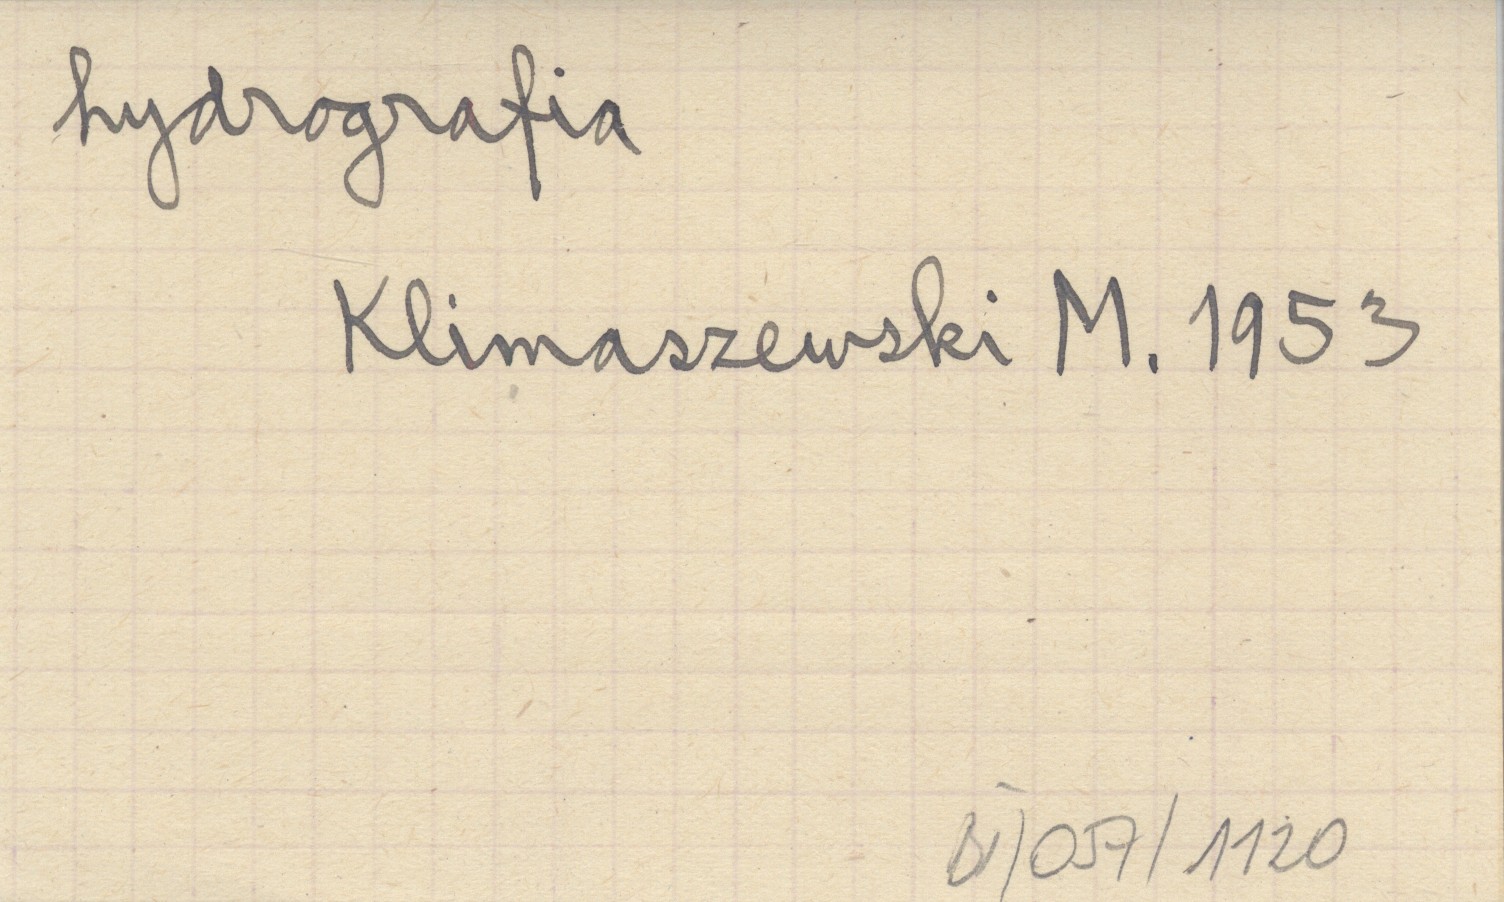 hydrografia
Klimaszewski M. 1953
BI/057/1120